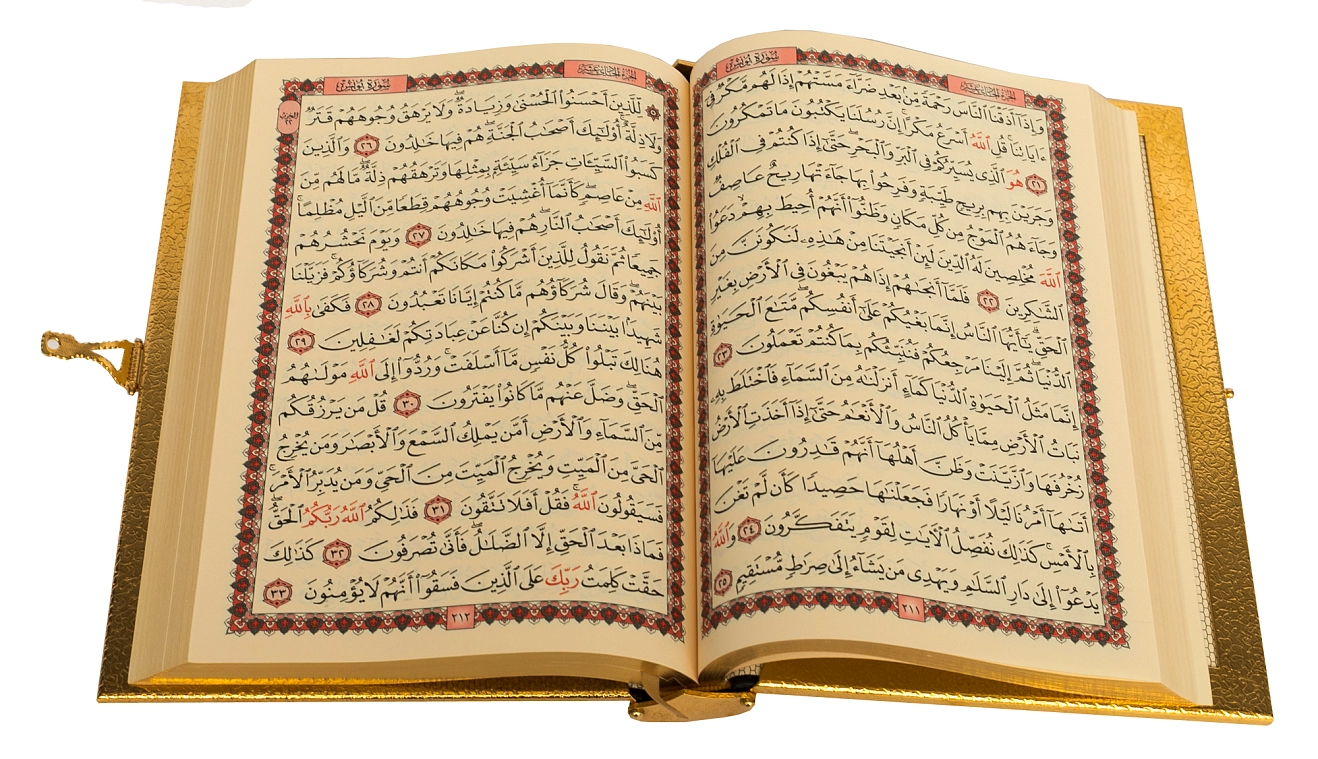 الجزء الحادي عشر سورة يونس
وَإِذَآ أَذَقۡنَا ٱلنَّاسَ رَحۡمَةٗ مِّنۢ بَعۡدِ ضَرَّآءَ مَسَّتۡهُمۡ إِذَا لَهُم مَّكۡرٞ فِيٓ
ءَايَاتِنَاۚ قُلِ ٱللَّهُ أَسۡرَعُ مَكۡرًاۚ إِنَّ رُسُلَنَا يَكۡتُبُونَ مَا تَمۡكُرُونَ
٢١ هُوَ ٱلَّذِي يُسَيِّرُكُمۡ فِي ٱلۡبَرِّ وَٱلۡبَحۡرِۖ حَتَّىٰٓ إِذَا كُنتُمۡ فِي ٱلۡفُلۡكِ
وَجَرَيۡنَ بِهِم بِرِيحٖ طَيِّبَةٖ وَفَرِحُواْ بِهَا جَآءَتۡهَا رِيحٌ عَاصِفٞ
وَجَآءَهُمُ ٱلۡمَوۡجُ مِن كُلِّ مَكَانٖ وَظَنُّوٓاْ أَنَّهُمۡ أُحِيطَ بِهِمۡ دَعَوُاْ
ٱللَّهَ مُخۡلِصِينَ لَهُ ٱلدِّينَ لَئِنۡ أَنجَيۡتَنَا مِنۡ هَٰذِهِۦ لَنَكُونَنَّ مِنَ
ٱلشَّٰكِرِينَ ٢٢ فَلَمَّآ أَنجَىٰهُمۡ إِذَا هُمۡ يَبۡغُونَ فِي ٱلۡأَرۡضِ بِغَيۡرِ
ٱلۡحَقِّۗ يَٰٓأَيُّهَا ٱلنَّاسُ إِنَّمَا بَغۡيُكُمۡ عَلَىٰٓ أَنفُسِكُمۖ مَّتَٰعَ ٱلۡحَيَوٰةِ
ٱلدُّنۡيَاۖ ثُمَّ إِلَيۡنَا مَرۡجِعُكُمۡ فَنُنَبِّئُكُم بِمَا كُنتُمۡ تَعۡمَلُونَ ٢٣
إِنَّمَا مَثَلُ ٱلۡحَيَوٰةِ ٱلدُّنۡيَا كَمَآءٍ أَنزَلۡنَٰهُ مِنَ ٱلسَّمَآءِ فَٱخۡتَلَطَ بِهِۦ
نَبَاتُ ٱلۡأَرۡضِ مِمَّا يَأۡكُلُ ٱلنَّاسُ وَٱلۡأَنۡعَٰمُ حَتَّىٰٓ إِذَآ أَخَذَتِ ٱلۡأَرۡضُ
زُخۡرُفَهَا وَٱزَّيَّنَتۡ وَظَنَّ أَهۡلُهَآ أَنَّهُمۡ قَٰدِرُونَ عَلَيۡهَآ
أَتَىٰهَآ أَمۡرُنَا لَيۡلًا أَوۡ نَهَارٗا فَجَعَلۡنَٰهَا حَصِيدٗا كَأَن لَّمۡ تَغۡنَ
بِٱلۡأَمۡسِۚ كَذَٰلِكَ نُفَصِّلُ ٱلۡأٓيَٰتِ لِقَوۡمٖ يَتَفَكَّرُونَ ٢٤ وَٱللَّهُ
يَدۡعُوٓاْ إِلَىٰ دَارِ ٱلسَّلَٰمِ وَيَهۡدِي مَن يَشَآءُ إِلَىٰ صِرَٰطٖ مُّسۡتَقِيمٖ ٢٥
٢١١
الجزء الحادي عشر سورة يونس
۞ لِّلَّذِينَ أَحۡسَنُواْ ٱلۡحُسۡنَىٰ وَزِيَادَةٞۖ وَلَا يَرۡهَقُ وُجُوهَهُمۡ قَتَرٞ
الحزب ٢٢
وَلَا ذِلَّةٌۚ أُوْلَٰٓئِكَ أَصۡحَٰبُ ٱلۡجَنَّةِۖ هُمۡ فِيهَا خَٰلِدُونَ ٢٦ وَٱلَّذِينَ
كَسَبُواْ ٱلسَّيِّـَٔاتِ جَزَآءُ سَيِّئَةِۭ بِمِثۡلِهَا وَتَرۡهَقُهُمۡ ذِلَّةٞۖ مَّا لَهُم مِّنَ
ٱللَّهِ مِنۡ عَاصِمٖۖ كَأَنَّمَآ أُغۡشِيَتۡ وُجُوهُهُمۡ قِطَعٗا مِّنَ ٱلَّيۡلِ مُظۡلِمًاۚ
أُوْلَٰٓئِكَ أَصۡحَٰبُ ٱلنَّارِۖ هُمۡ فِيهَا خَٰلِدُونَ ٢٧ وَيَوۡمَ نَحۡشُرُهُمۡ
جَمِيعٗا ثُمَّ نَقُولُ لِلَّذِينَ أَشۡرَكُواْ مَكَانَكُمۡ أَنتُمۡ وَشُرَكَآؤُكُمۡۚ فَزَيَّلۡنَا
بَيۡنَهُمۡۖ وَقَالَ شُرَكَآؤُهُم مَّا كُنتُمۡ إِيَّانَا تَعۡبُدُونَ ٢٨ فَكَفَىٰ بِٱللَّهِ
شَهِيدَۢا بَيۡنَنَا وَبَيۡنَكُمۡ إِن كُنَّا عَنۡ عِبَادَتِكُمۡ لَغَٰفِلِينَ ٢٩
هُنَالِكَ تَبۡلُواْ كُلُّ نَفۡسٖ مَّآ أَسۡلَفَتۡۚ وَرُدُّوٓاْ إِلَى ٱللَّهِ مَوۡلَىٰهُمُ
ٱلۡحَقِّۖ وَضَلَّ عَنۡهُم مَّا كَانُواْ يَفۡتَرُونَ ٣٠ قُلۡ مَن يَرۡزُقُكُم
مِّنَ ٱلسَّمَآءِ وَٱلۡأَرۡضِ أَمَّن يَمۡلِكُ ٱلسَّمۡعَ وَٱلۡأَبۡصَٰرَ وَمَن يُخۡرِجُ
ٱلۡحَيَّ مِنَ ٱلۡمَيِّتِ وَيُخۡرِجُ ٱلۡمَيِّتَ مِنَ ٱلۡحَيِّ وَمَن يُدَبِّرُ ٱلۡأَمۡرَۚ
فَسَيَقُولُونَ ٱللَّهُۚ فَقُلۡ أَفَلَا تَتَّقُونَ ٣١ فَذَٰلِكُمُ ٱللَّهُ رَبُّكُمُ ٱلۡحَقُّۖ
فَمَاذَا بَعۡدَ ٱلۡحَقِّ إِلَّا ٱلضَّلَٰلُۖ فَأَنَّىٰ تُصۡرَفُونَ ٣٢ كَذَٰلِكَ
حَقَّتۡ كَلِمَتُ رَبِّكَ عَلَى ٱلَّذِينَ فَسَقُوٓاْ أَنَّهُمۡ لَا يُؤۡمِنُونَ ٣٣
٢١٢